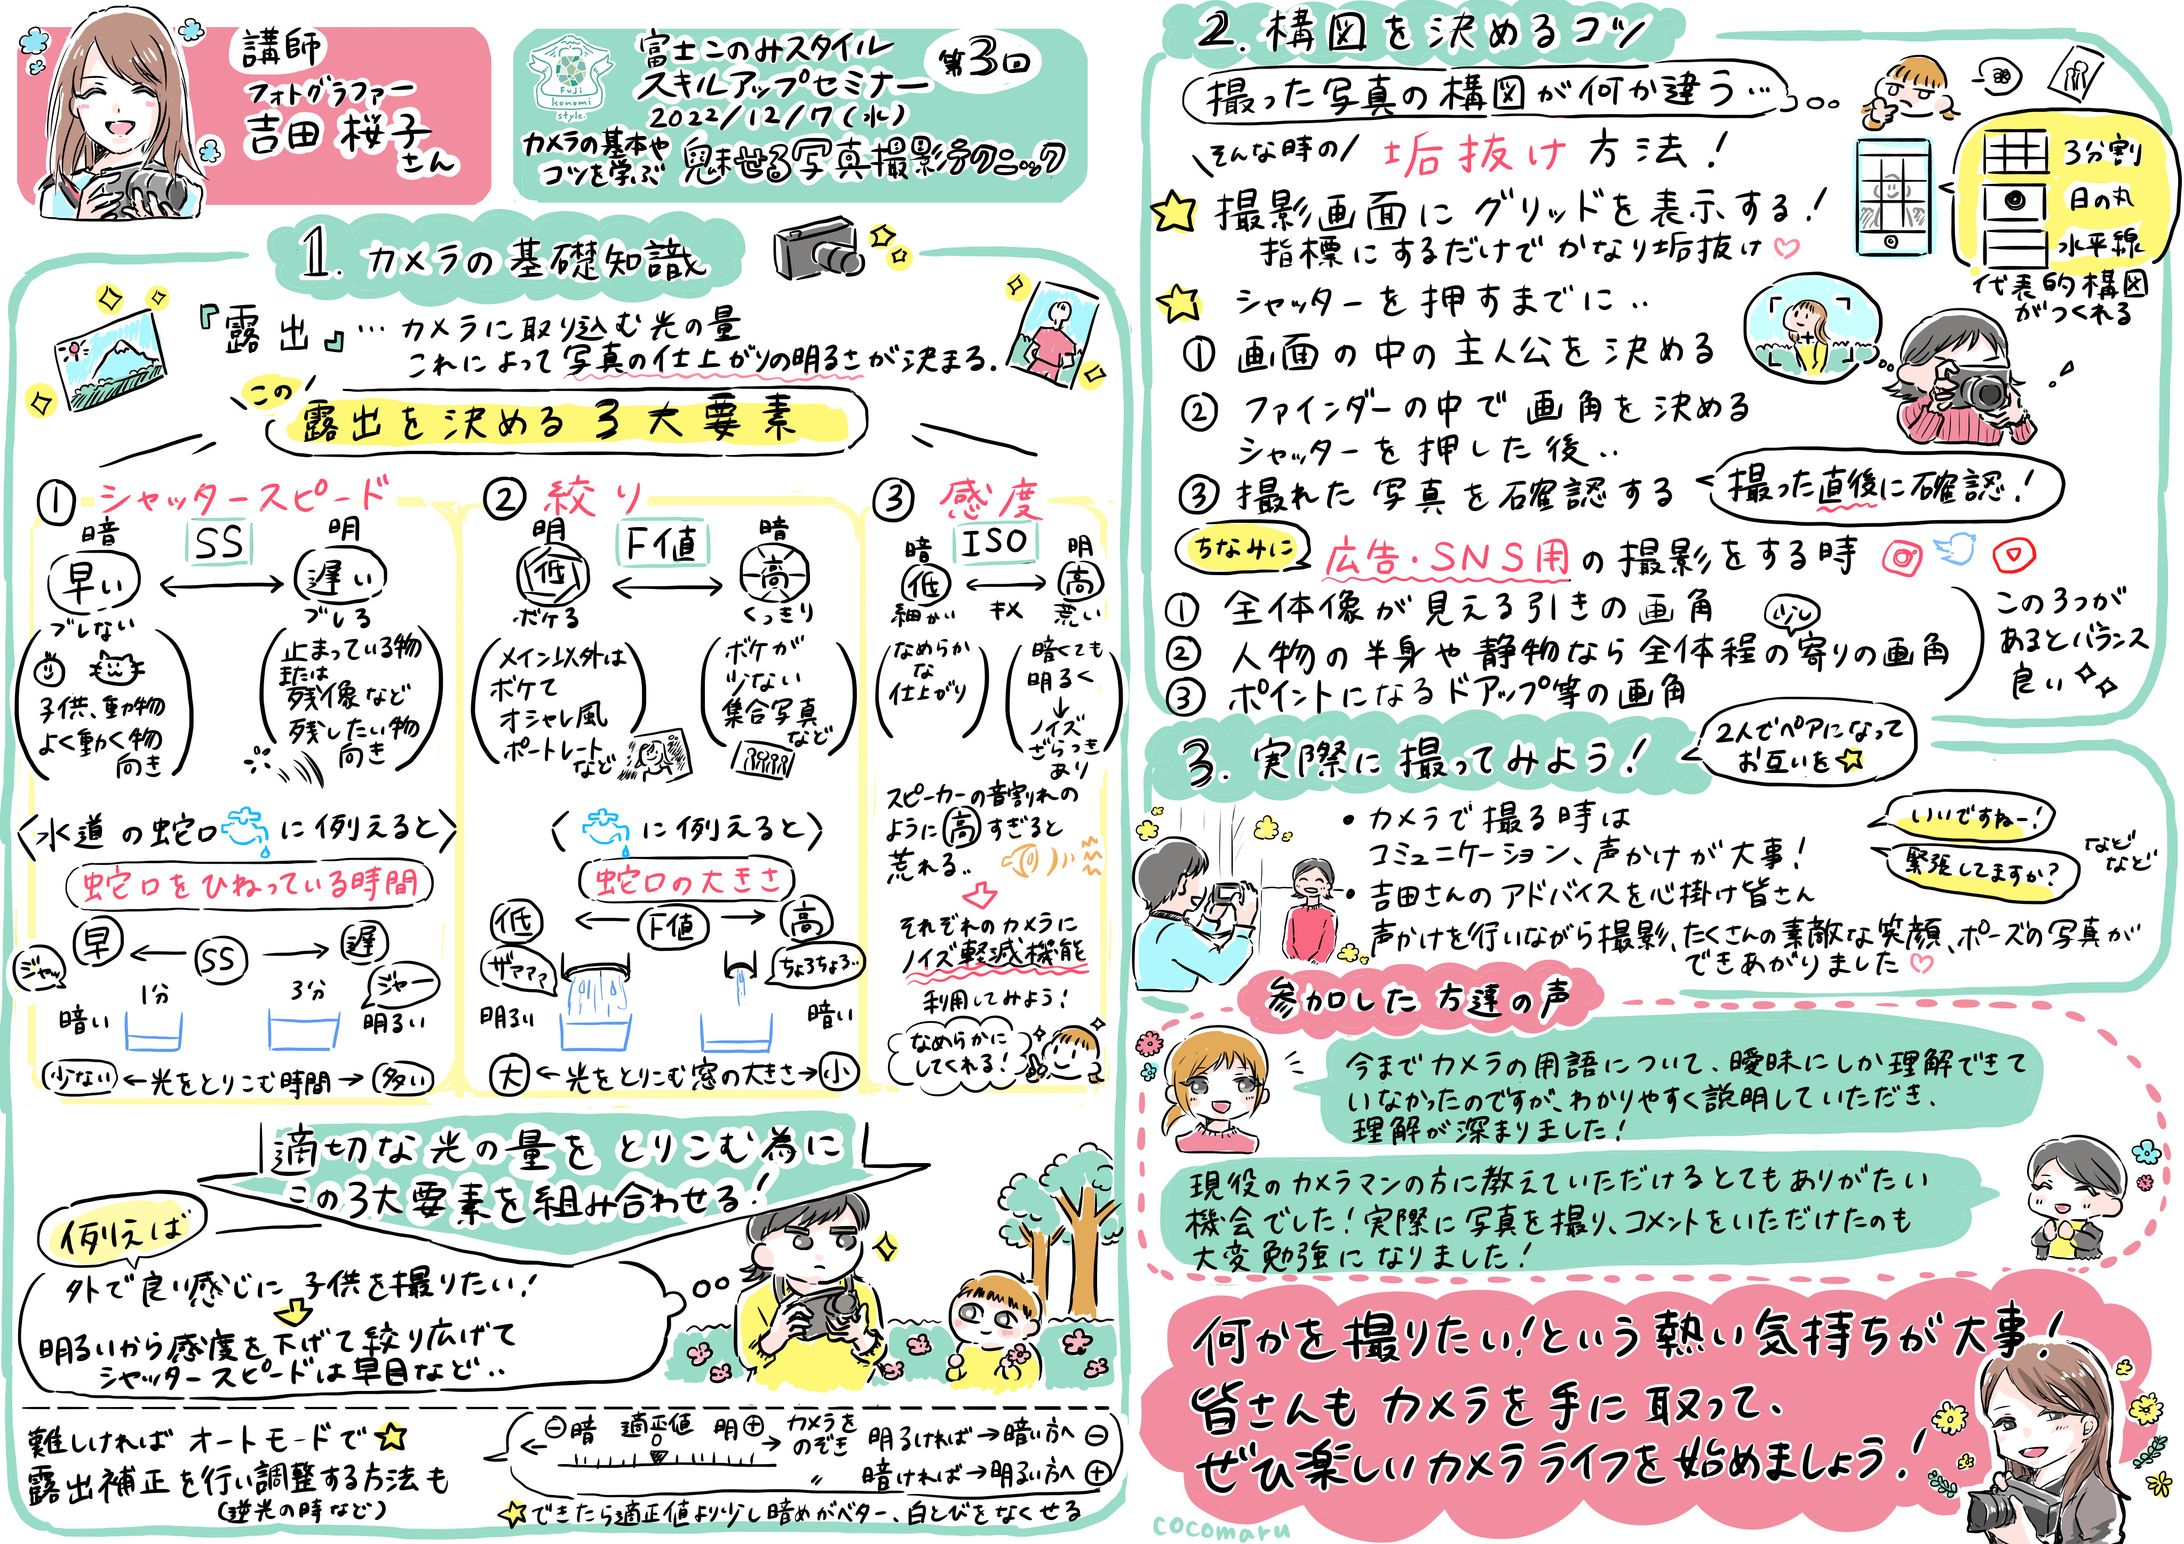 講師
フォトグラファー
吉田 桜子
さん
Fuji
konomi
style.
富士このみスタイル
スキルアップセミナー
第3回
2022/12/7(水)
カメラの基本や
コツを学ぶ
魅せる写真撮影テクニック
1. カメラの基礎知識
『露出』… カメラに取り込む光の量
これによって写真の仕上がりの明るさが決まる.
この
露出を決める 3大要素
① シャッタースピード
暗 SS 明
早い ⟷ 遅い
ブレない ブレる
子供、動物
よく動く物
向き
止まっている物
または
残像など
残したい物
向き
〈水道の蛇口に例えると〉
蛇口をひねっている時間
早 ← SS → 遅
ジャッ ジャー
1分 3分
暗い 明るい
少ない ← 光をとりこむ時間 → 多い
② 絞り
明 F値 暗
低 ⟷ 高
ボケる くっきり
メイン以外は
ボケて
オシャレ風
ポートレート
など
ボケが
少ない
集合写真
など
〈に例えると〉
蛇口の大きさ
低 ← F値 → 高
ザァァァ ちょろちょろ..
明るい 暗い
大 ← 光をとりこむ窓の大きさ → 小
③ 感度
暗 ISO 明
低 ⟷ 高
細かい キメ 荒い
なめらか
な
仕上がり
暗くても
明るく
↓
ノイズ
ざらつき
あり
スピーカーの音割れの
ように高すぎると
荒れる..
それぞれのカメラに
ノイズ軽減機能
利用してみよう!
なめらかに
してくれる!
適切な光の量をとりこむ為に
この3大要素を組み合わせる!
例えば
外で良い感じに子供を撮りたい!
明るいから感度を下げて絞り広げて
シャッタースピードは早目など..
難しければオートモードで
露出補正を行い調整する方法も
(逆光の時など)
⊖暗 適正値 明⊕
カメラを
のぞき
明るければ→暗い方へ⊖
〃 暗ければ→明るい方へ⊕
☆できたら適正値より少し暗めがベター、白とびをなくせる
2. 構図を決めるコツ
撮った写真の構図が何か違う…
\そんな時の/ 垢抜け方法!
☆ 撮影画面にグリッドを表示する!
指標にするだけでかなり垢抜け♡
3分割
日の丸
水平線
代表的構図
がつくれる
☆ シャッターを押すまでに..
① 画面の中の主人公を決める
② ファインダーの中で画角を決める
シャッターを押した後..
③ 撮れた写真を確認する
撮った直後に確認!
ちなみに
広告・SNS用の撮影をする時
① 全体像が見える引きの画角
② 人物の半身や静物なら全体程の寄りの画角
少し
③ ポイントになるドアップ等の画角
この3つが
あるとバランス
良い
3. 実際に撮ってみよう!
2人でペアになって
お互いを☆
・カメラで撮る時は
コミュニケーション、声かけが大事!
いいですねー!
緊張してますか?
などなど
・吉田さんのアドバイスを心掛け皆さん
声かけを行いながら撮影、たくさんの素敵な笑顔、ポーズの写真が
できあがりました♡
参加した方達の声
今までカメラの用語について、曖昧にしか理解できて
いなかったのですが、わかりやすく説明していただき、
理解が深まりました!
現役のカメラマンの方に教えていただけるとてもありがたい
機会でした!実際に写真を撮り、コメントをいただけたのも
大変勉強になりました!
何かを撮りたい!という熱い気持ちが大事!
皆さんもカメラを手に取って、
ぜひ楽しいカメラライフを始めましょう!
cocomaru